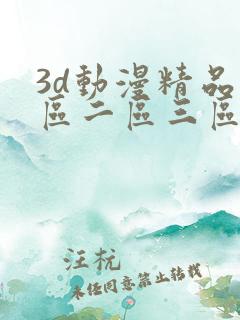 3d動漫精品
區二區三區
汪杭
未經同意禁止轉載